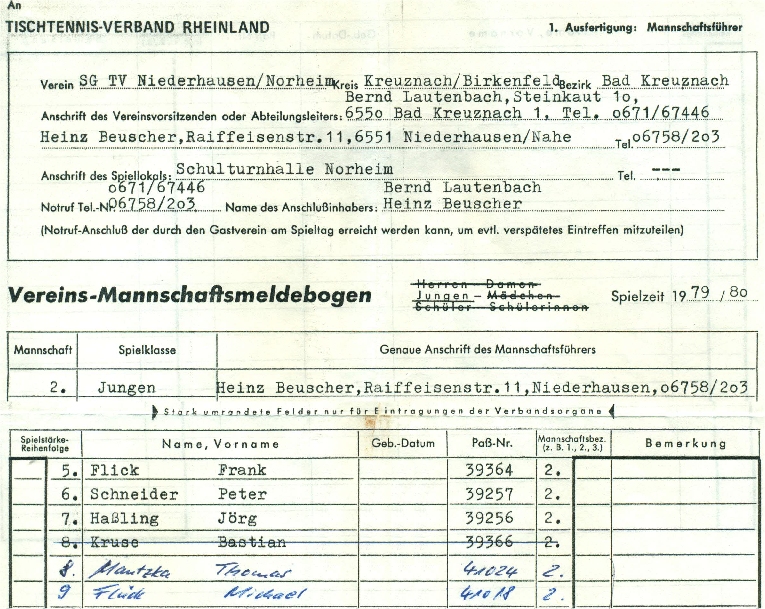 An
TISCHTENNIS-VERBAND RHEINLAND
1. Ausfertigung: Mannschaftsführer
Verein SG TV Niederhausen/Norheim Kreis Kreuznach/Birkenfeld Bezirk Bad Kreuznach
Bernd Lautenbach,Steinkaut 1o,
Anschrift des Vereinsvorsitzenden oder Abteilungsleiters: 655o Bad Kreuznach 1, Tel. o671/67446
Heinz Beuscher,Raiffeisenstr.11,6551 Niederhausen/Nahe Tel. o6758/2o3
Anschrift des Spiellokals: Schulturnhalle Norheim Tel. ---
o671/67446 Bernd Lautenbach
Notruf Tel.-Nr. o6758/2o3 Name des Anschlußinhabers: Heinz Beuscher
(Notruf-Anschluß der durch den Gastverein am Spieltag erreicht werden kann, um evtl. verspätetes Eintreffen mitzuteilen)
Vereins-Mannschaftsmeldebogen
Herren – Damen
Jungen – Mädchen
Schüler – Schülerinnen
Spielzeit 19 79 / 80
Mannschaft Spielklasse Genaue Anschrift des Mannschaftsführers
2. Jungen Heinz Beuscher,Raiffeisenstr.11,Niederhausen,o6758/2o3
Stark umrandete Felder nur für Eintragungen der Verbandsorgane
Spielstärke-Reihenfolge Name, Vorname Geb.-Datum Paß-Nr. Mannschaftsbez. (z. B. 1., 2., 3.) Bemerkung
5. Flick Frank 39364 2.
6. Schneider Peter 39257 2.
7. Haßling Jörg 39256 2.
8. Kruse Bastian 39366 2.
8. Mantzka Thomas 41024 2.
9 Flück Michael 41018 2.